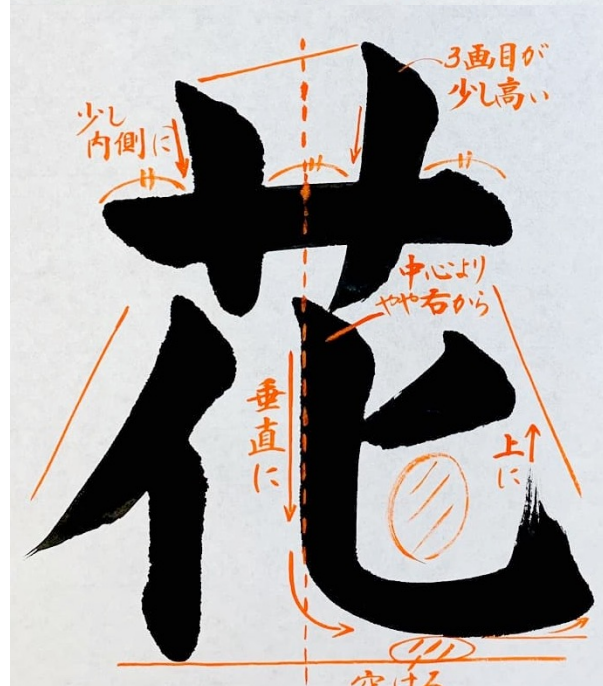 3画目が
少し高い
少し
内側に
花
中心より
やや右から
垂直に
上に
空ける